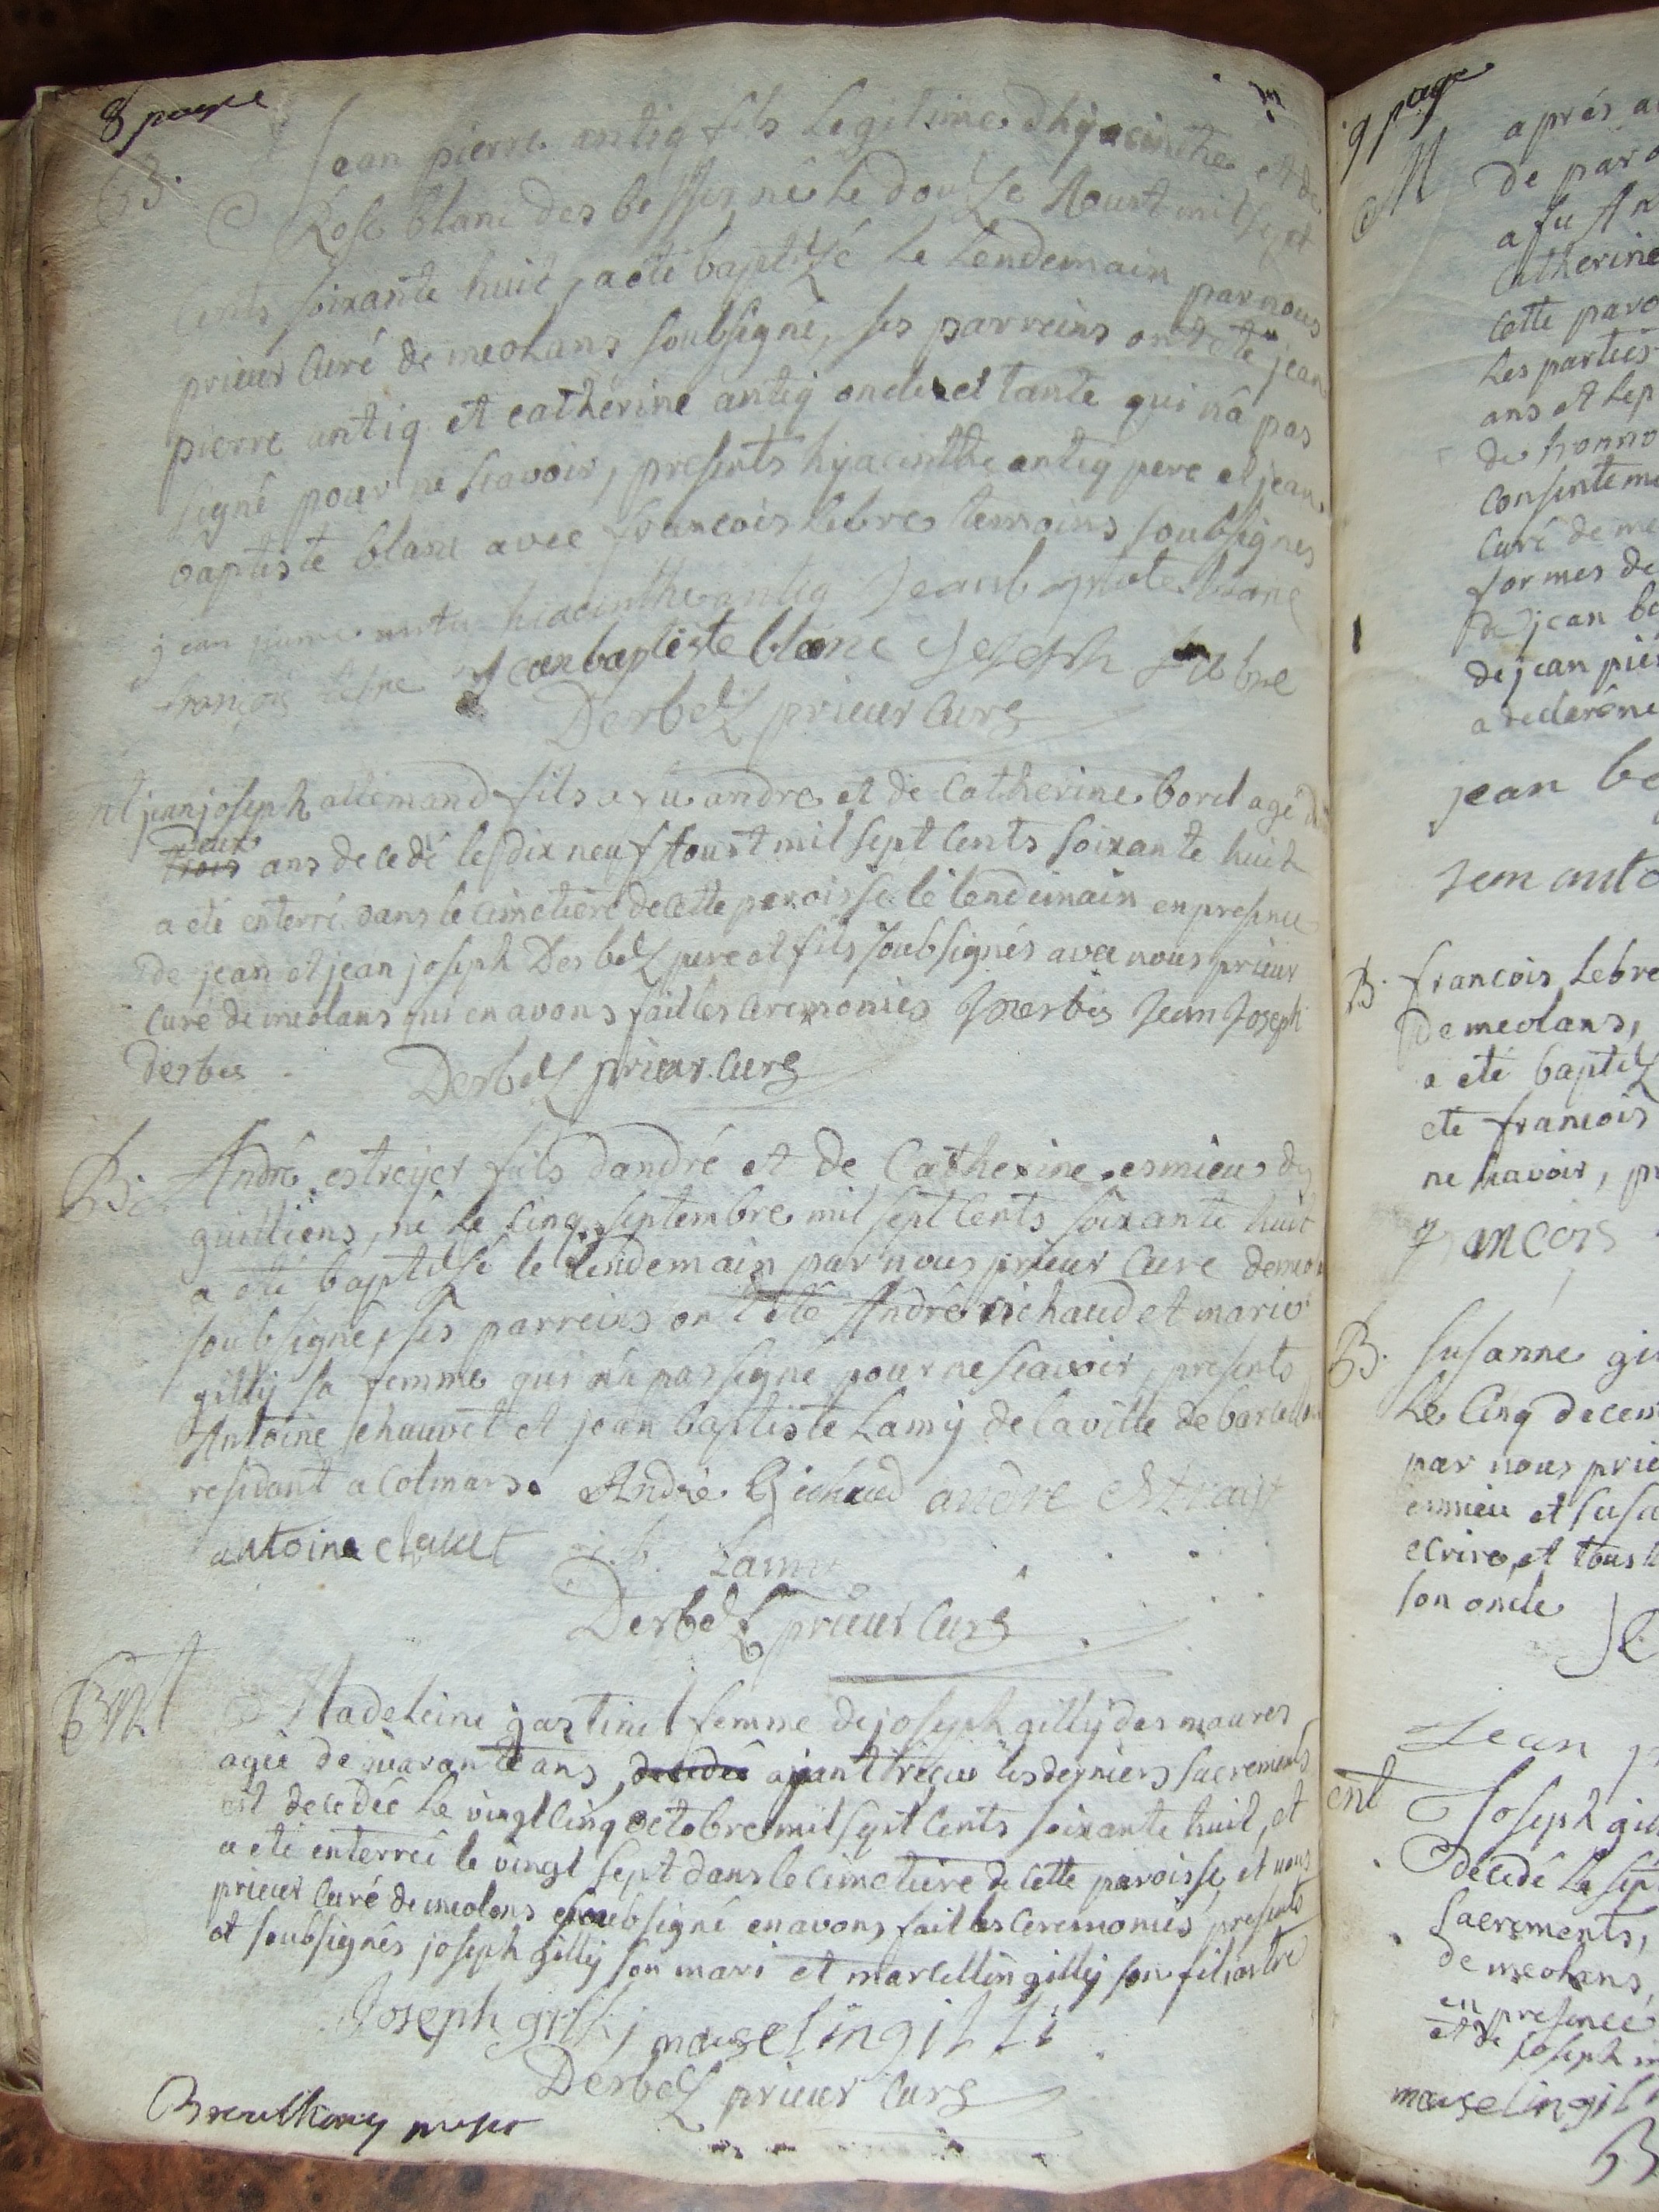 8 page
B.
Jean pierre antiq fils Legitime d'hyacinthe et de
Rose blanc des besses né le douse Aoust mil sept
cents soixante huit, a eté baptizé Le Lendemain par nous
prieur Curé de meolans soubsigné, ses parreins ont eté jean
pierre antiq et catherine antiq oncle et tante qui n'a pas
signé pour ne scavoir, presents hyacinthe antiq pere et jean
baptiste blanc avec francois Lebre temoins soubsignes
jean pierre antiq hiacinthe antiq Jean baptiste blanc
françois lebre Jean baptiste blanc Joseph Lebre
Derbez prieur Curé
nt jean joseph allemand fils a fu andre et de Catherine borel agé de
deux
trois ans decedé le dix neuf Aoust mil sept Cents soixante huit
a eté enterré dans le cimetiere de cette paroisse le lendemain en presence
de jean et jean joseph Derbez pere et fils soubsignés avec nous prieur
Curé de meolans qui en avons fait les ceremonies J Derbes Jean Joseph
derbes Derbez prieur Curé
B. André estreyer fils d'andré et de Catherine esmieu des
guilliens, né Le Cinq septembre mil sept Cents soixante huit
a eté baptizé le lendemain par nous prieur Curé de meo
soubsigné, ses parreins ont eté André richaud et marie
gilly sa femme qui n'a pas signé pour ne scavoir, presents
Antoine chauvet et jean baptiste Lamy de la ville de barcellon
residant a Colmars. André Richaud andre
antoine j. b. Lamy
Derbez prieur Curé
Ent
Madeleine gastinel femme de joseph gilly des maures
agée de quarante ans, decedée ayant reçeu les derniers sacrements
est decedée Le vingt cinq octobre mil sept Cents soixante huit, et
a eté enterrée le vingt sept dans le cimetiere de cette paroisse, et nous
prieur Curé de meolans soubsigné en avons fait les ceremonies, presents
et soubsignés joseph gilly son mari et marcellin gilly son filiastre
Joseph gilli, marselin gilli
Derbez prieur Curé
9 page
M
aprés a
De paro
a fu An
Catherine
Cette paro
Les parties
ans et Lep
de honno
Consenteme
Curé de me
formes de
De jean ba
de jean pier
a declaré ne
jean be
B. francois Lebre
De meolans,
a eté baptiz
eté francois
ne scavoir, pr
francois
B. susanne gi
Le Cinq decem
par nous prie
esmieu et susa
ecrire, et tous
son oncle
Jean
ent
Joseph gil
decedé Le sept
sacrements,
de meolans,
en presence
et de Joseph m
marselin gil